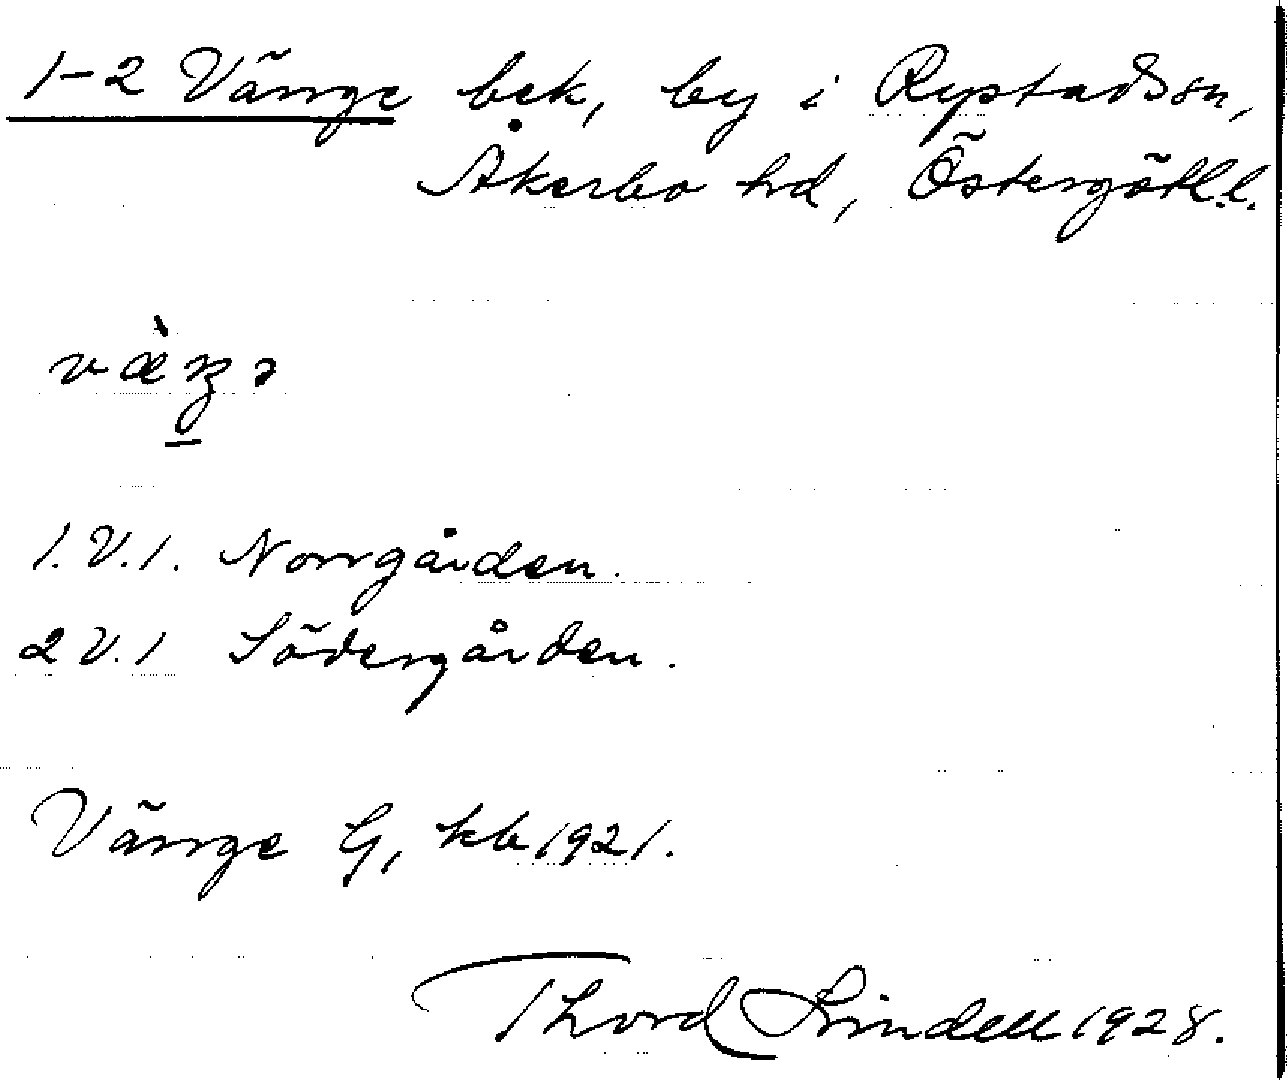 1-2 Vänge bek, by i Rystad sn,
Åkerbo hd, Östergötl.l.
1. V. 1. Norrgården.
2 V. 1 Södergården.
Vänge G, kb 1921.
Thord Lindell 1928.